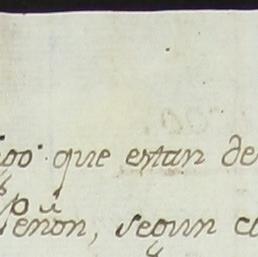 que estan de
Peñon, segun